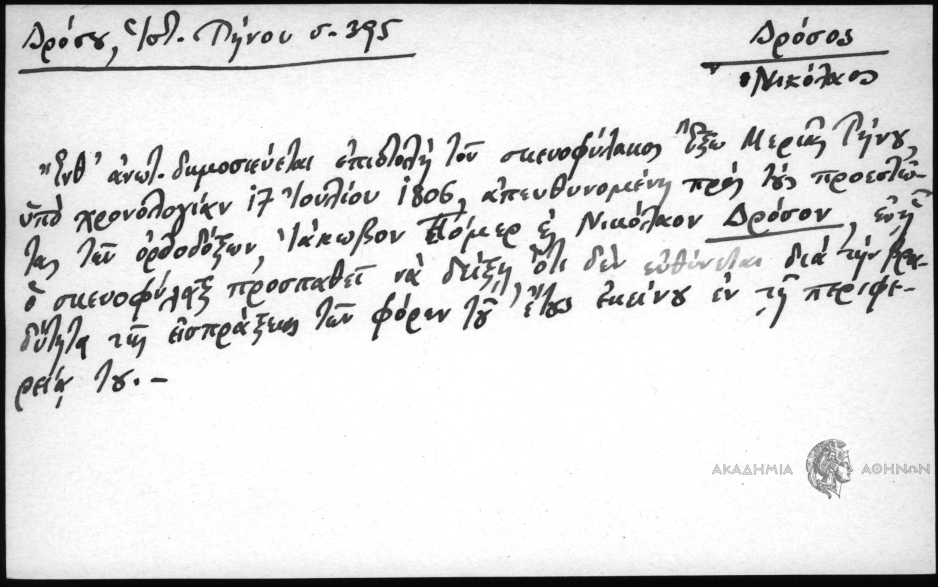 Δρόσου, Ἱστ. Τήνου σ. 395
Δρόσος
Νικόλαος
Ἔνθ' ἀνωτ. δημοσιεύεται ἐπιστολὴ τοῦ σκευοφύλακος Ἔξω Μεριᾶς Τήνου,
ὑπὸ χρονολογίαν 17 Ἰουλίου 1806, ἀπευθυνομένη πρὸς τοὺς προεστῶ-
τας τῶν ὀρθοδόξων, Ἰάκωβον Πόμερ ἢ Νικόλαον Δρόσον, ἐν ᾗ
ὁ σκευοφύλαξ προσπαθεῖ νὰ δείξῃ ὅτι δὲν εὐθύνεται διὰ τὴν βρα-
δύτητα τῆς εἰσπράξεως τῶν φόρων τοῦ ἔτους ἐκείνου ἐν τῇ περιφε-
ρείᾳ του. –
ΑΚΑΔΗΜΙΑ ΑΘΗΝΩΝ